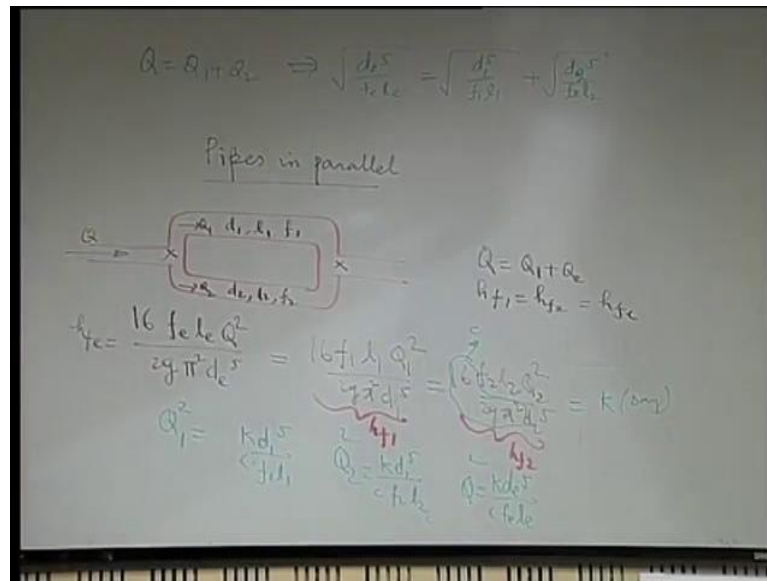 Q = Q₁+Q₂ ⇒ √(dₑ⁵/fₑlₑ) = √(d₁⁵/f₁l₁) + √(d₂⁵/f₂l₂)
Pipes in parallel
Q
→Q₁ d₁, l₁, f₁
→Q₂ d₂, l₂, f₂
Q = Q₁+Q₂
h_f₁ = h_f₂ = h_fₑ
h_fₑ = 16 fₑ lₑ Q²/2gπ²dₑ⁵ = 16 f₁ l₁ Q₁²/2gπ²d₁⁵ = 16 f₂ l₂ Q₂²/2gπ²d₂⁵ = K (say)
c
h_f₁ h_f₂
Q₁² = Kd₁⁵/cf₁l₁ Q₂² = Kd₂⁵/cf₂l₂ Q² = Kdₑ⁵/cfₑlₑ